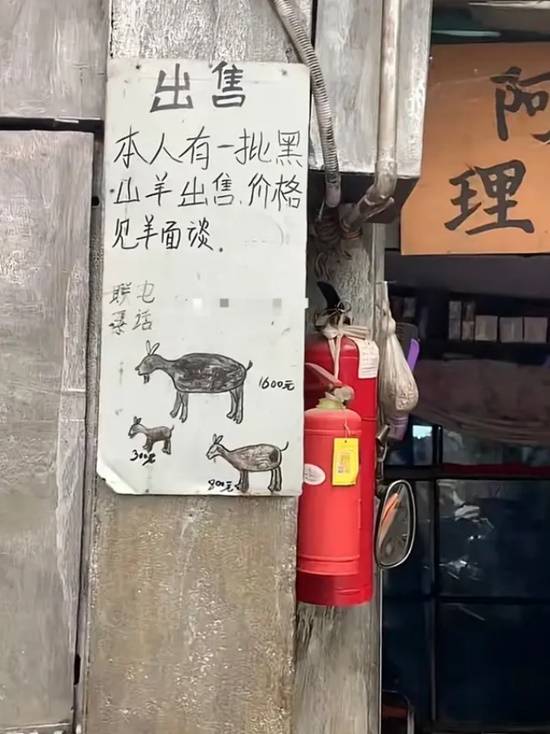 出售
本人有一批黑
山羊出售,价格
见羊面谈.
联电
系话
1600元
300元
800元
阿
理